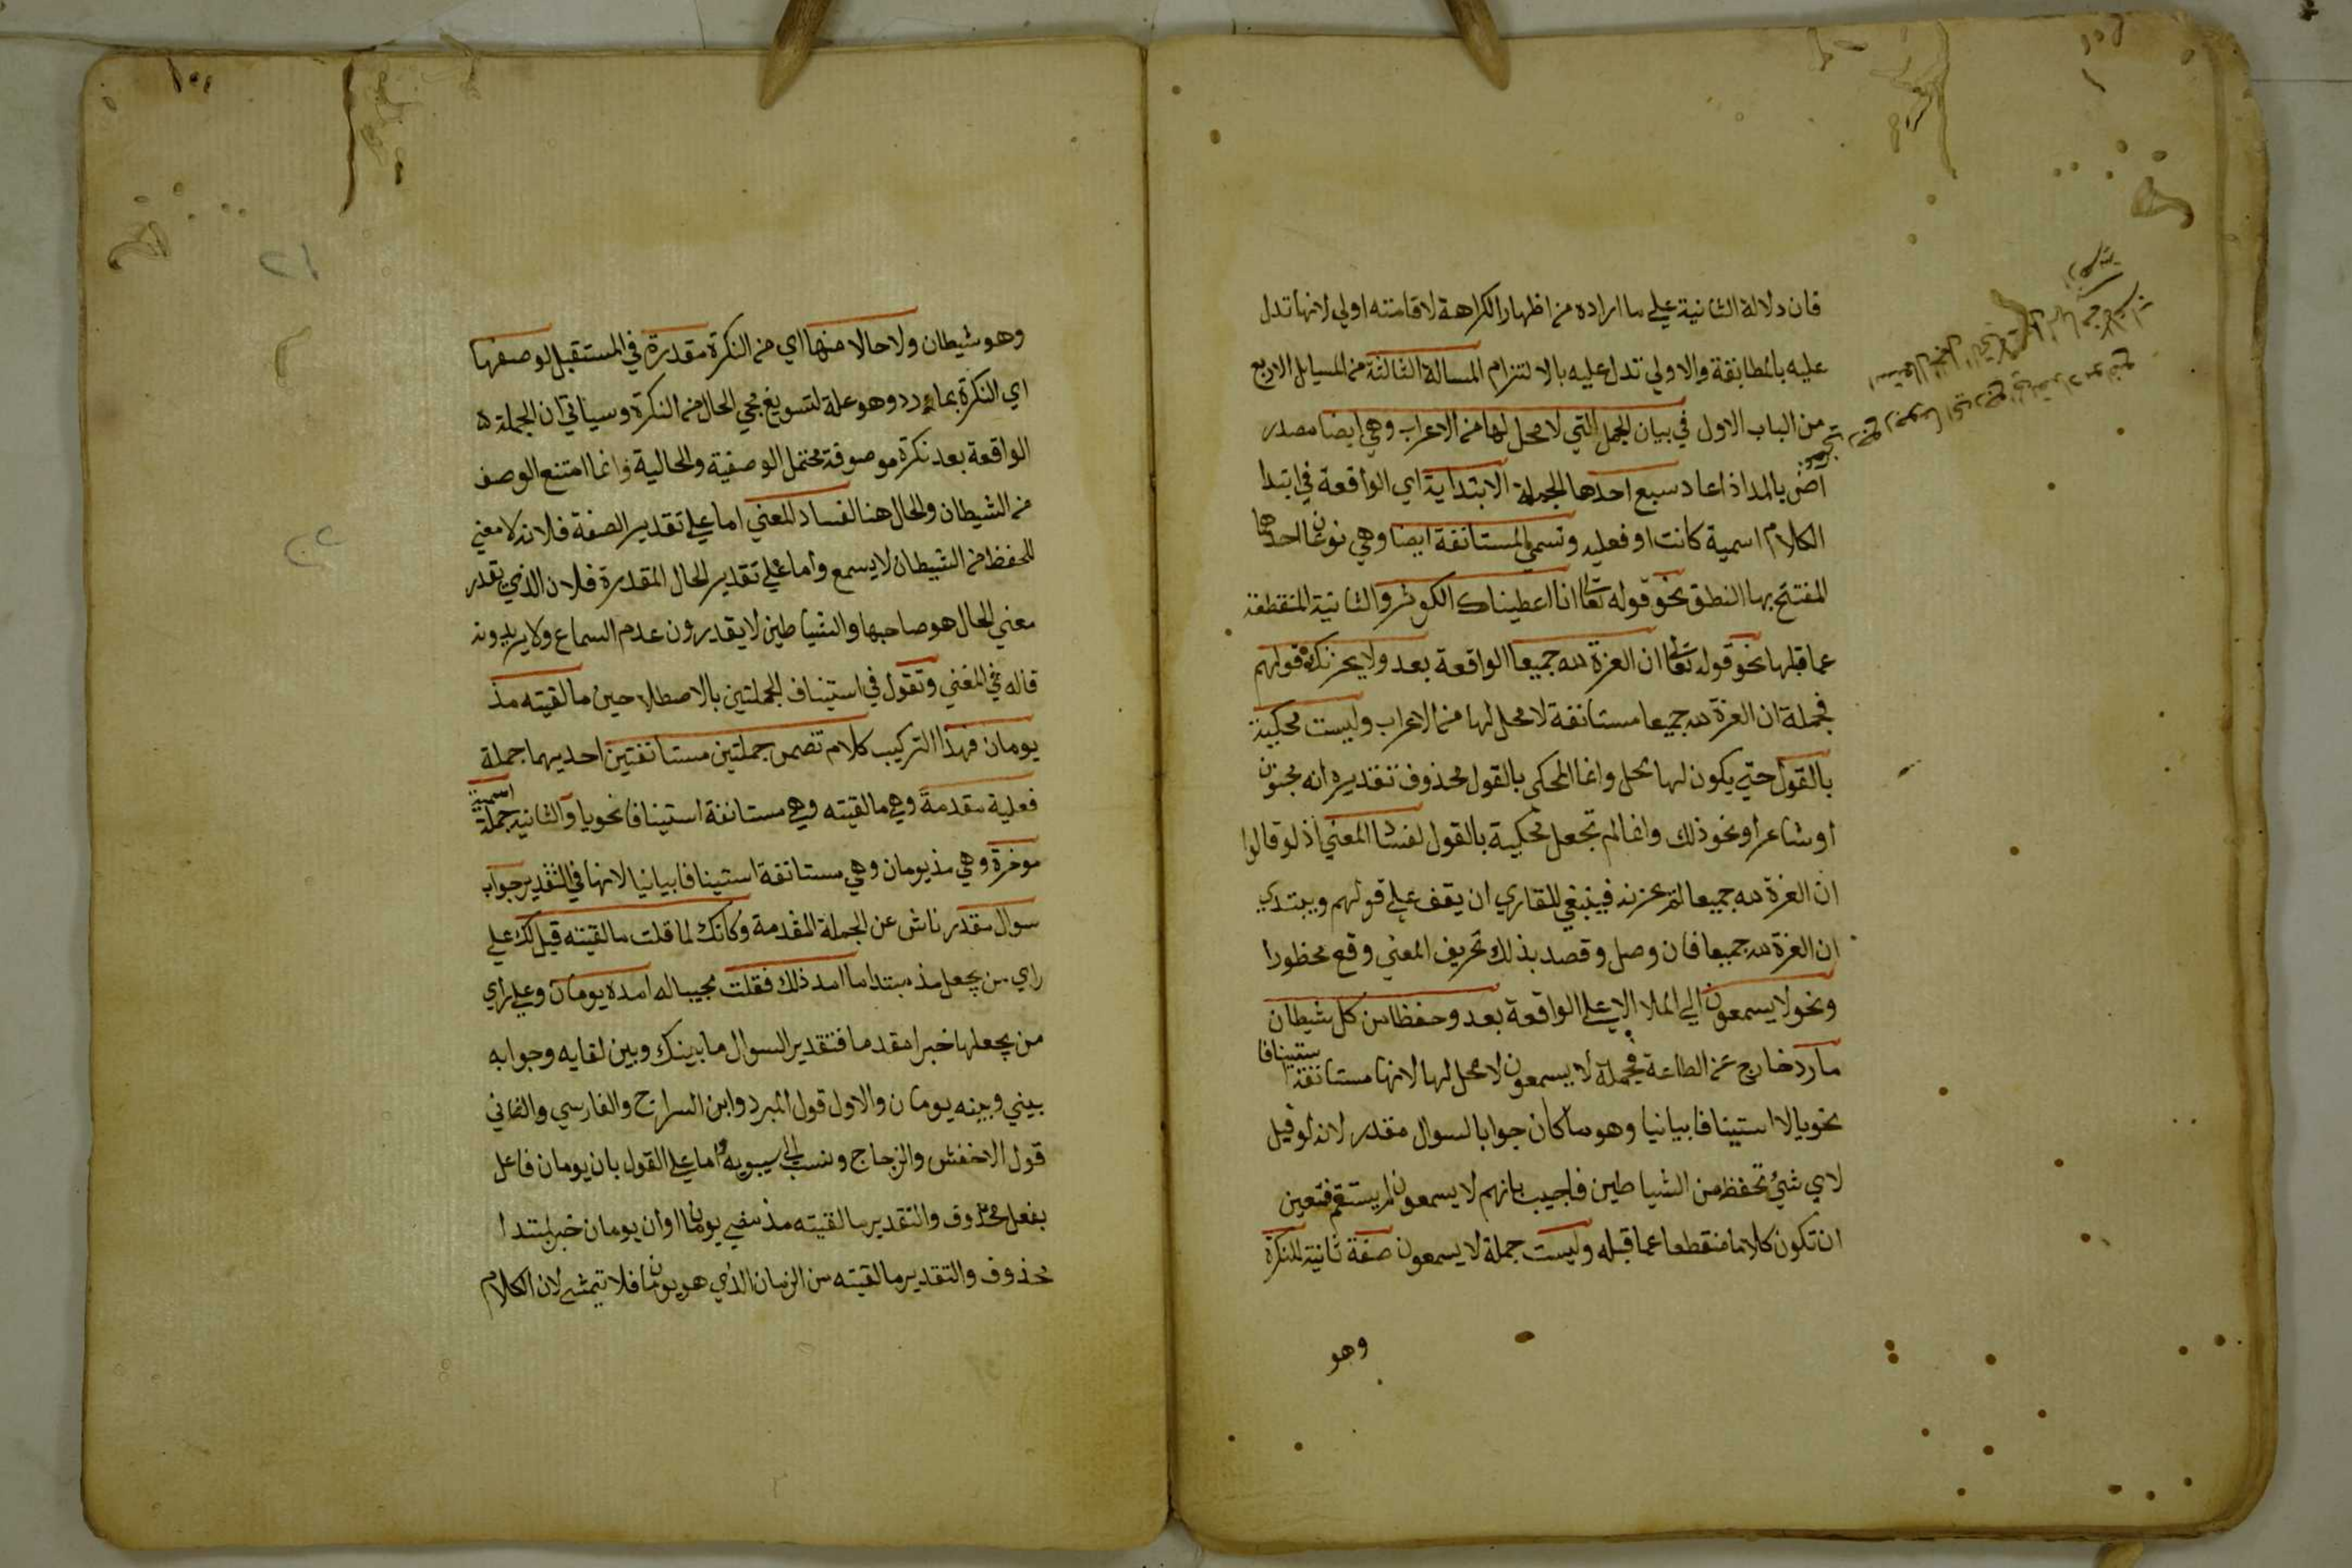 فان دلالة الثانية علي ما اراده من اظهار الكراهة لاقامته اولي لانها تدل
عليه بالمطابقة والاولي تدل عليه بالالتزام المسالة الثالثة من المسايل الاربع
من الباب الاول في بيان الجمل التي لا محل لها من الاعراب وهي ايضا مصدر
اض بالمد اذا عاد سبع احدها الجملة الابتداية اي الواقعة في ابتدا
الكلام اسمية كانت او فعليه وتسمي المستانفة ايضا وهي نوعان احدها
المفتتح بها النطق نحو قوله تعالي انا اعطيناك الكوثر والثانية المنقطعة
عما قبلها نحو قوله تعالي ان العزة لله جميعا الواقعة بعد ولا يحزنك قولهم
فجملة ان العزة لله جميعا مستانفة لا محل لها من الاعراب وليست محكية
بالقول حتي يكون لها محل وانما المحكي بالقول محذوف تقديره انه مجنون
او شاعر او نحو ذلك وانما لم تجعل محكية بالقول لفساد المعني اذ لو قالوا
ان العزة لله جميعا لم يحزنه فينبغي للقاري ان يقف علي قولهم ويبتدي
ان العزة لله جميعا فان وصل وقصد بذلك تحريف المعني وقع محظورا
ونحو لا يسمعون الي الملا الاعلي الواقعة بعد وحفظا من كل شيطان
مارد خارج عن الطاعة فجملة لا يسمعون لا محل لها لانها مستانفة استينافا
نحويا لا استينافا بيانيا وهو ما كان جوابا لسوال مقدر لانه لو قيل
لاي شيء تحفظ من الشياطين فاجيب بانهم لا يسمعون لم يستقم فتعين
ان تكون كلاما منقطعا عما قبله وليست جملة لا يسمعون صفة ثانية للنكرة
وهو
وهو شيطان ولا حالا منها اي من النكرة مقدرة في المستقبل لوصفها
اي النكرة بمارد وهو علة لتسويغ مجي الحال من النكرة وسياتي ان الجملة
الواقعة بعد نكرة موصوفة تحتمل الوصفية والحالية وانما امتنع الوصف
من الشيطان والحال هنا لفساد المعني اما علي تقدير الصفة فلانه لا معني
للحفظ من الشيطان لا يسمع واما علي تقدير الحال المقدرة فلان الذي يقدر
معني الحال هو صاحبها والشياطين لا يقدرون عدم السماع ولا يريدونه
قاله في المغني وتقول في استيناف الجملتين بالاصطلاحين ما لقيته مذ
يومان فهذا التركيب كلام تضمن جملتين مستانفتين احديهما جملة
فعلية مقدمة وهي ما لقيته وهي مستانفة استينافا نحويا والثانية جملة اسمية
موخرة وهي مذ يومان وهي مستانفة استينافا بيانيا لانها في التقدير جواب
سوال مقدر ناش عن الجملة المقدمة وكانك لما قلت ما لقيته قيل لك علي
راي من يجعل مذ مبتدا ما امد ذلك فقلت مجيبا له امده يومان وعلي راي
من يجعلها خبرا مقدما فتقدير السوال ما بينك وبين لقايه وجوابه
بيني وبينه يومان والاول قول المبرد وابن السراج والفارسي والثاني
قول الاخفش والزجاج ونسب الي سيبويه واما علي القول بان يومان فاعل
بفعل محذوف والتقدير ما لقيته مذ مضي يومان او ان يومان خبر لمبتدا
محذوف والتقدير ما لقيته من الزمان الذي هو يومان فلا يتمشي لان الكلام